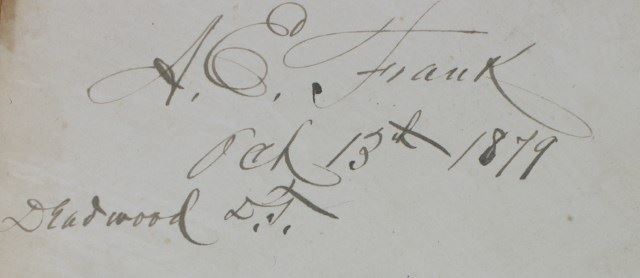 A. E. Frank
Oct 13th 1879
Deadwood D.T.